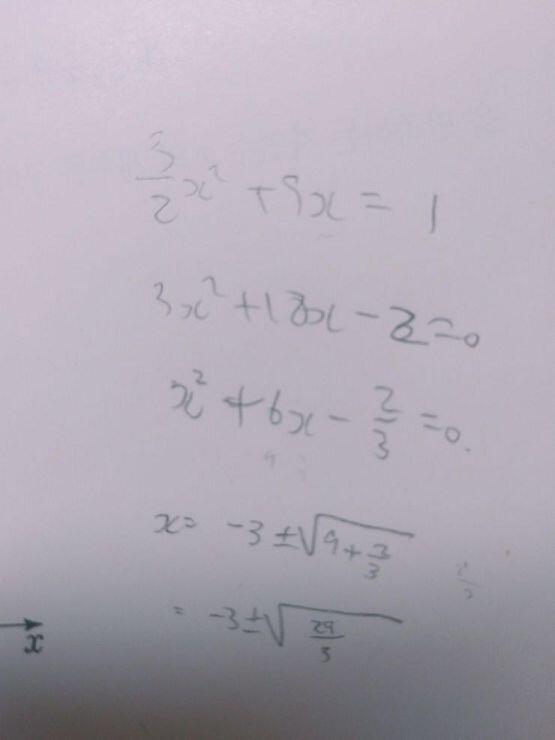 3/2 x² + 9x = 1
3x² + 18x - 2 = 0
x² + 6x - 2/3 = 0.
x = -3 ± √(9 + 2/3)
= -3 ± √(29/3)
x